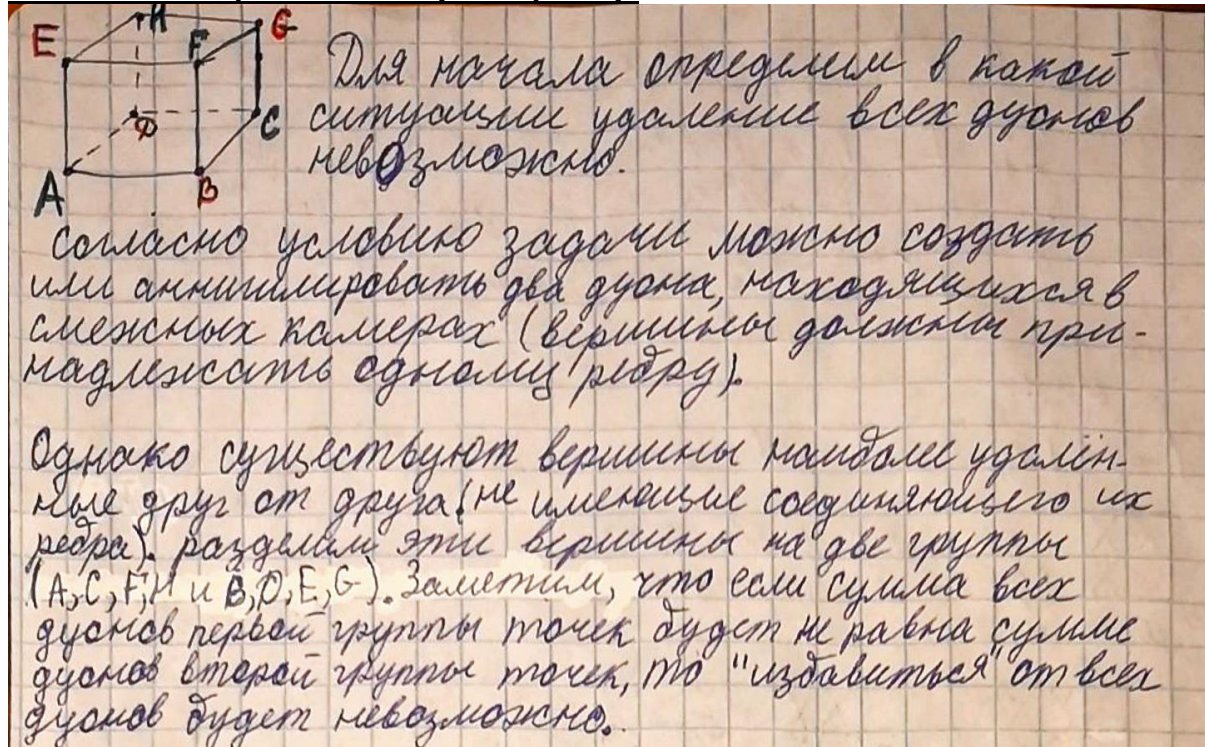 H
E F G
Для начала определим в какой
D C ситуации удаление всех дуонов
невозможно.
A B
Согласно условию задачи можно создать
или аннигилировать два дуона, находящихся в
смежных камерах (вершины должны при-
надлежать одному ребру).
Однако существуют вершины наиболее удалён-
ные друг от друга (не имеющие соединяющего их
ребра). разделим эти вершины на две группы
(A,C,F,H и B,D,E,G). Заметим, что если сумма всех
дуонов первой группы точек будет не равна сумме
дуонов второй группы точек, то "избавиться" от всех
дуонов будет невозможно.